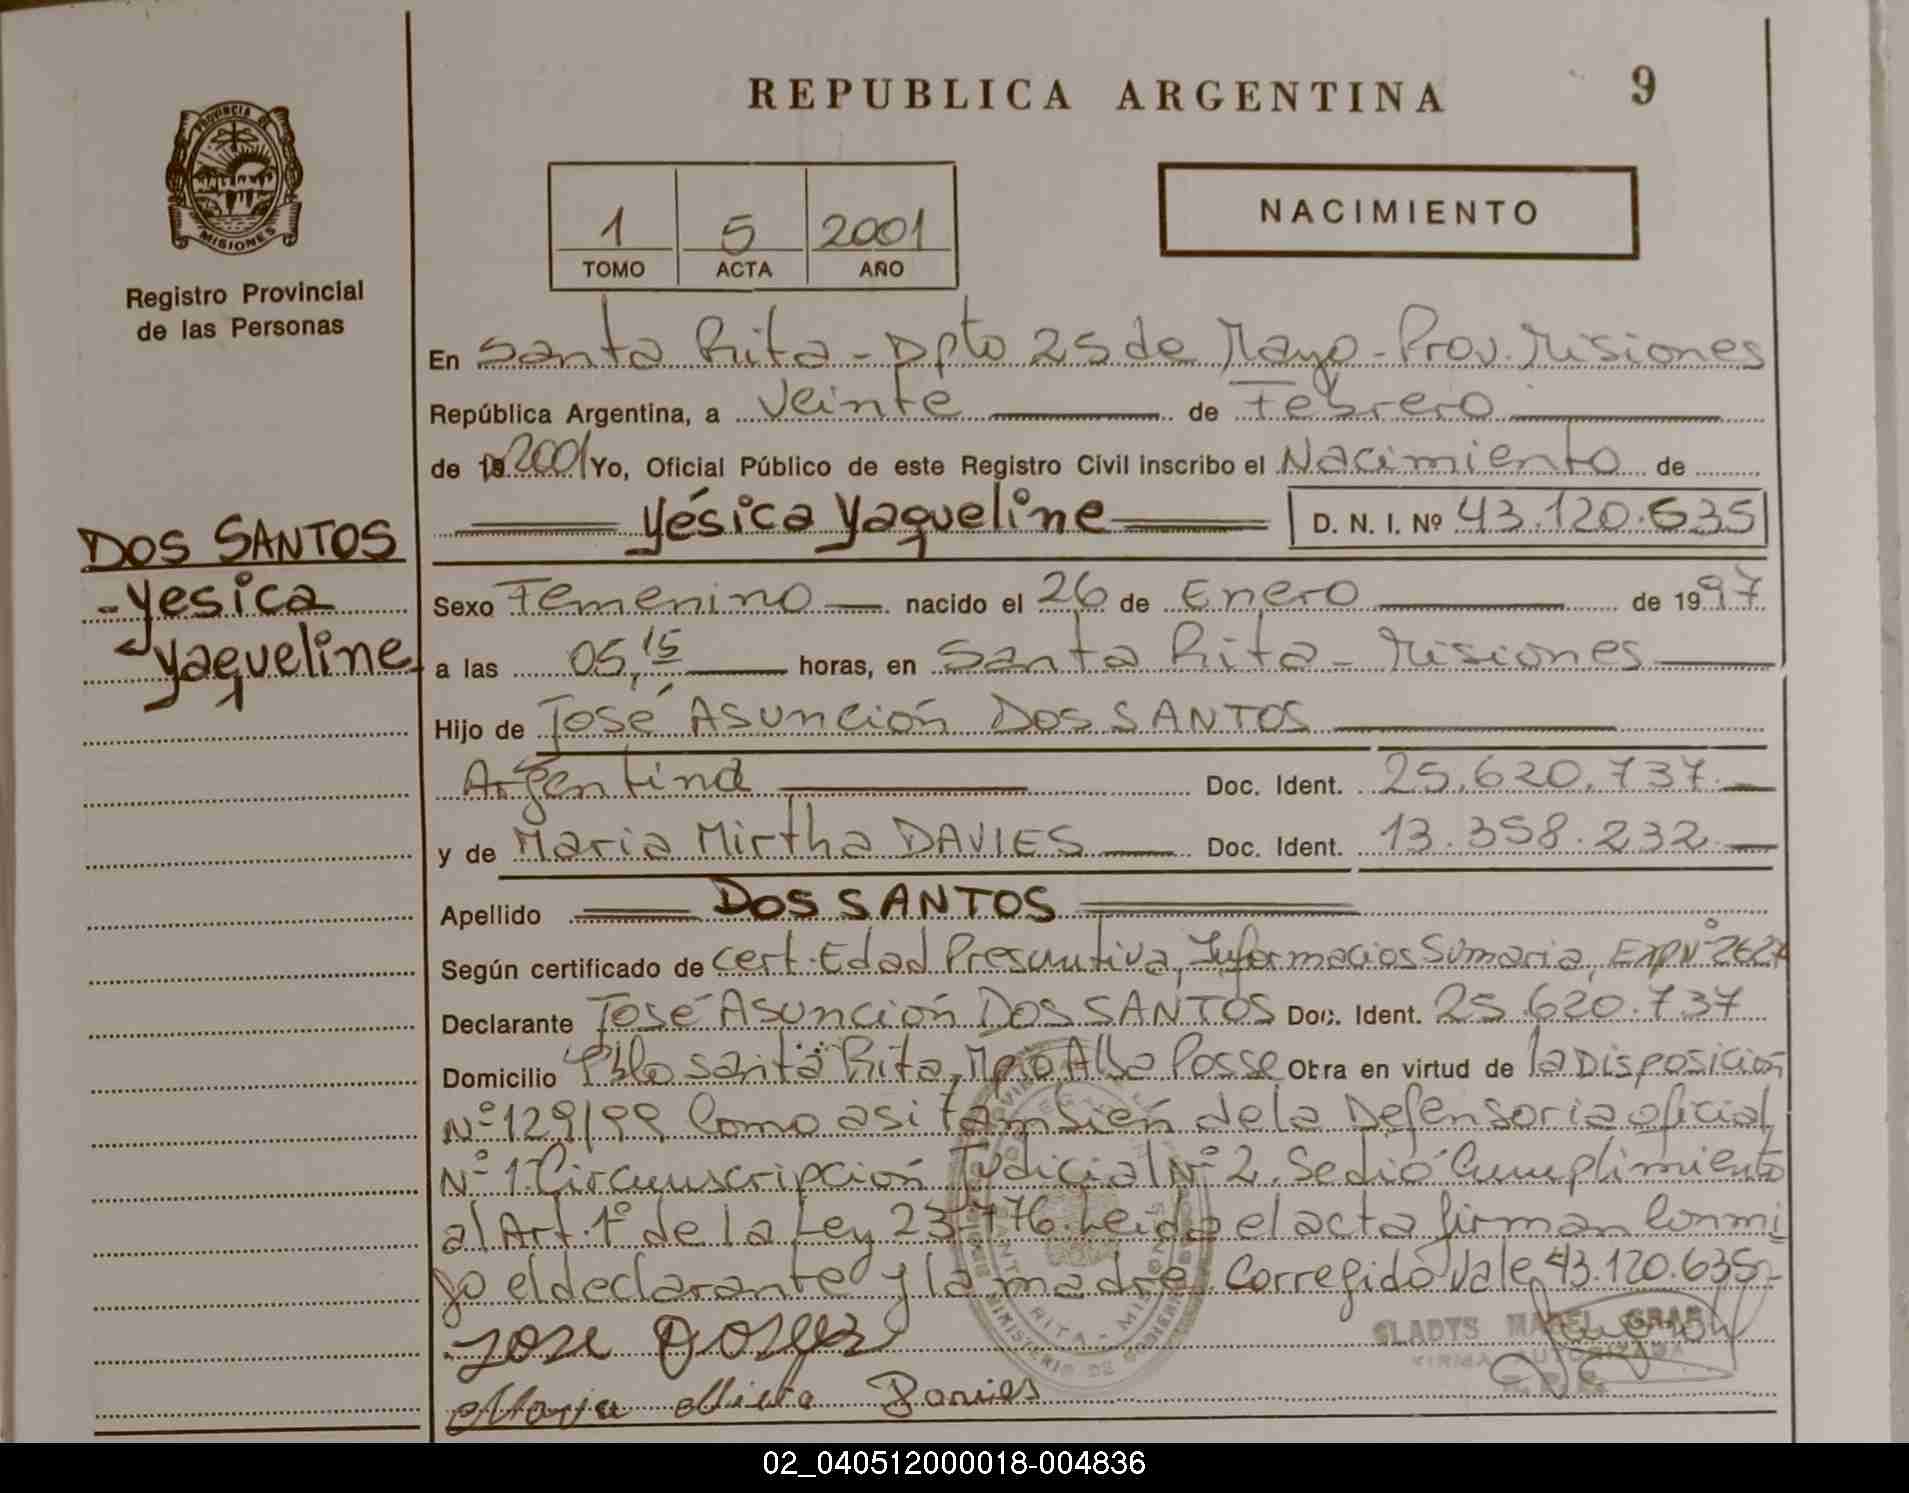 REPUBLICA ARGENTINA 9
PROVINCIA DE
MISIONES
Registro Provincial
de las Personas
1 5 2001
TOMO ACTA AÑO
NACIMIENTO
En Santa Rita - Dpto 25 de Mayo - Prov. Misiones
República Argentina, a Veinte de Febrero
de 19 2001 Yo, Oficial Público de este Registro Civil inscribo el Nacimiento de
Yésica Yaqueline D. N. I. Nº 43.120.635
DOS SANTOS
- Yesica
Yaqueline
Sexo Femenino nacido el 26 de Enero de 1997
a las 05,15 horas, en Santa Rita - Misiones
Hijo de José Asunción DOS SANTOS
Argentina Doc. Ident. 25.620.737
y de Maria Mirtha DAVIES Doc. Ident. 13.358.232
Apellido DOS SANTOS
Según certificado de Cert. Edad Presuntiva, Informacios Sumaria, Exp Nº 262
Declarante José Asunción DOS SANTOS Doc. Ident. 25.620.737
Domicilio Pblo Santa Rita, Mpio Alba Posse Obra en virtud de la Disposición
Nº 129/99 Como asi también de la Defensoria oficial
Nº 1 Circunscripción Judicial Nº 2. Se dió Cumplimiento
al Art. 1º de la Ley 23.776. Leida el acta firman Conmi
go el declarante y la madre. Corregido Vale 43.120.635
Jose Dos
Maria Mirta Davies
GLADYS MABEL
FIRMA AUTORIZADA
SANTA RITA - MISIONES
MINISTERIO DE GOBIERNO
02_040512000018-004836